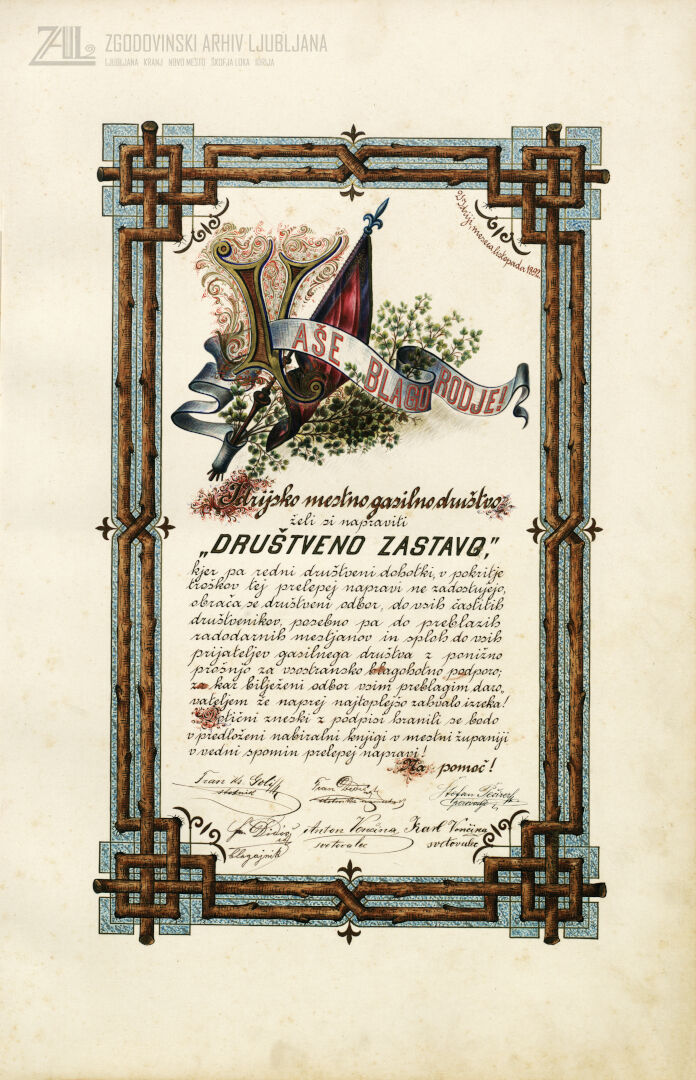 ZAL ZGODOVINSKI ARHIV LJUBLJANA
LJUBLJANA KRANJ NOVO MESTO ŠKOFJA LOKA IDRIJA
V Idriji, meseca listopada 1892
VAŠE BLAGORODJE!
Idrijsko mestno gasilno društvo
želi si napraviti
„DRUŠTVENO ZASTAVO,"
kjer pa redni društveni dohotki, v pokritje
troškov tej prelepej napravi ne zadostujejo,
obrača se društveni odbor, do vsih častitih
društvenikov, posebno pa do preblazih
radodarnih mestjanov in sploh do vsih
prijateljev gasilnega društva z ponižno
prošnjo za vsostransko blagohotno podporo;
za kar bilježeni odbor vsim preblagim daro,
vateljem že naprej najtoplejšo zahvalo izreka!
Totični zneski z podpisi hranili se bodo
v predloženi nabiralni knjigi v mestni županiji
v vedni spomin prelepej napravi!
Na pomoč!
Fran
Štefan
blagajnik
Anton Vončina
svetovalec
Karl Vončina
svetovalec